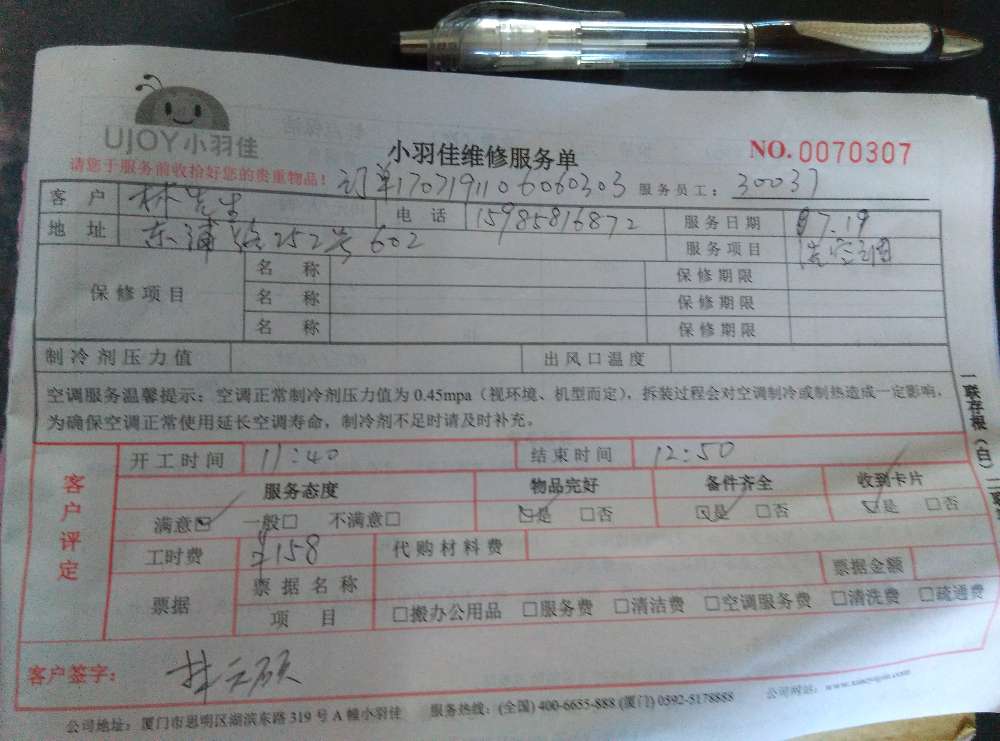 UJOY小羽佳
小羽佳维修服务单
NO. 0070307
请您于服务前收拾好您的贵重物品!
订单1707191106060303 服务员工: 30037
客户 林先生 电话 15985816872 服务日期 07.19
地址 东浦路252号602 服务项目 洗空调
保修项目 名称 保修期限
名称 保修期限
名称 保修期限
制冷剂压力值 出风口温度
空调服务温馨提示:空调正常制冷剂压力值为 0.45mpa(视环境、机型而定),拆装过程会对空调制冷或制热造成一定影响,
为确保空调正常使用延长空调寿命,制冷剂不足时请及时补充。
一联存根(白)
客户评定
开工时间 11:40 结束时间 12:50
服务态度 物品完好 备件齐全 收到卡片
满意☑ 一般□ 不满意□ ☑是 □否 ☑是 □否 ☑是 □否
工时费 ¥158 代购材料费
票据 票据名称 票据金额
项目 □搬办公用品 □服务费 □清洁费 □空调服务费 □清洗费 □疏通费
客户签字:
公司地址:厦门市思明区湖滨东路 319 号 A 幢小羽佳 服务热线:(全国) 400-6655-888 (厦门) 0592-5178888 公司网站: